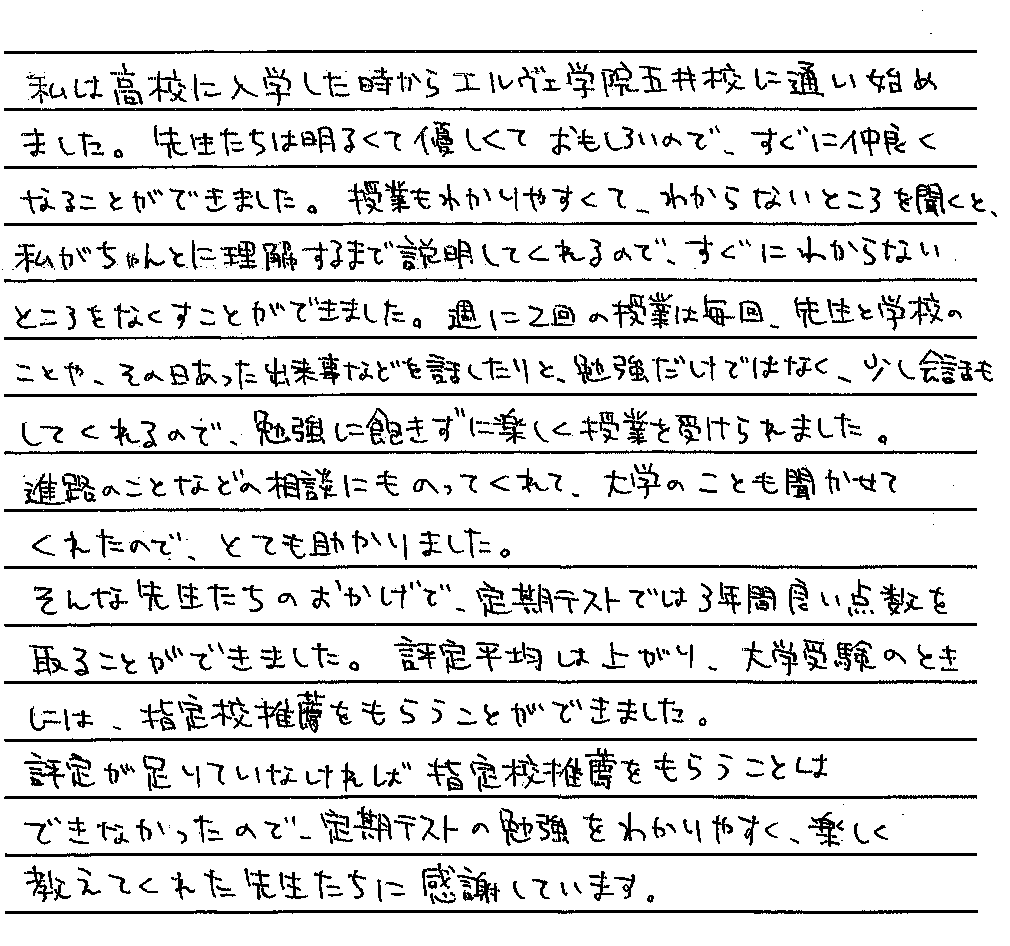 私は高校に入学した時からエルヴェ学院五井校に通い始め
ました。先生たちは明るくて優しくておもしろいので、すぐに仲良く
なることができました。授業もわかりやすくて、わからないところを聞くと、
私がちゃんとに理解するまで説明してくれるので、すぐにわからない
ところをなくすことができました。週に2回の授業は毎回、先生と学校の
ことや、その日あった出来事などを話したりと、勉強だけではなく、少し会話も
してくれるので、勉強に飽きずに楽しく授業を受けられました。
進路のことなどの相談にものってくれて、大学のことも聞かせて
くれたので、とても助かりました。
そんな先生たちのおかげで、定期テストでは3年間良い点数を
取ることができました。評定平均は上がり、大学受験のとき
には、指定校推薦をもらうことができました。
評定が足りていなければ指定校推薦をもらうことは
できなかったので、定期テストの勉強をわかりやすく、楽しく
教えてくれた先生たちに感謝しています。